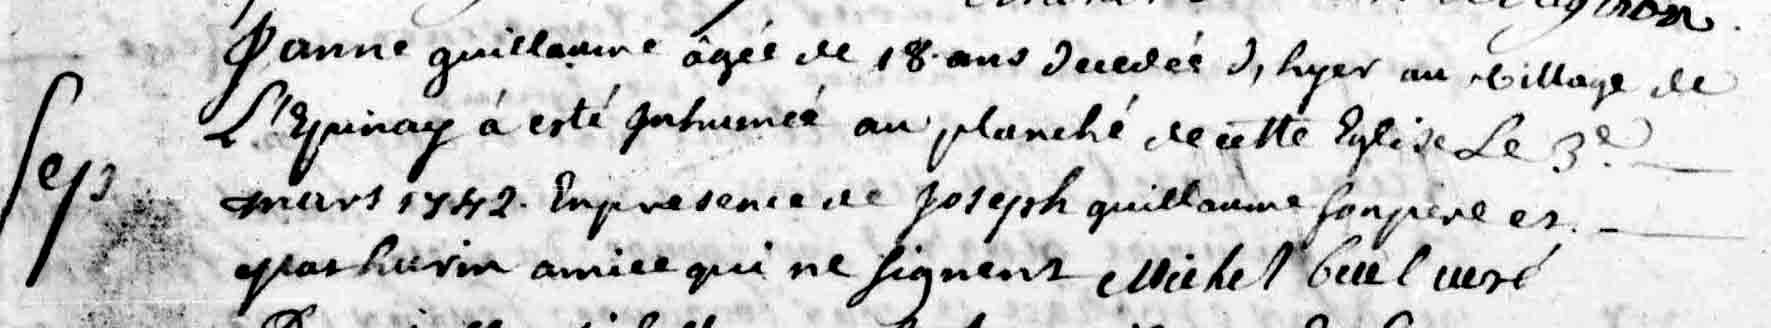 Janne guillaume âgée de 18 ans decedée d'hyer au village de
L'Epinay á esté Inhumée au planché de cette Eglise Le 3e
Sep
mars 1742. En presence de Joseph guillaume son pere et
Mathurin amice qui ne signent Michel curé